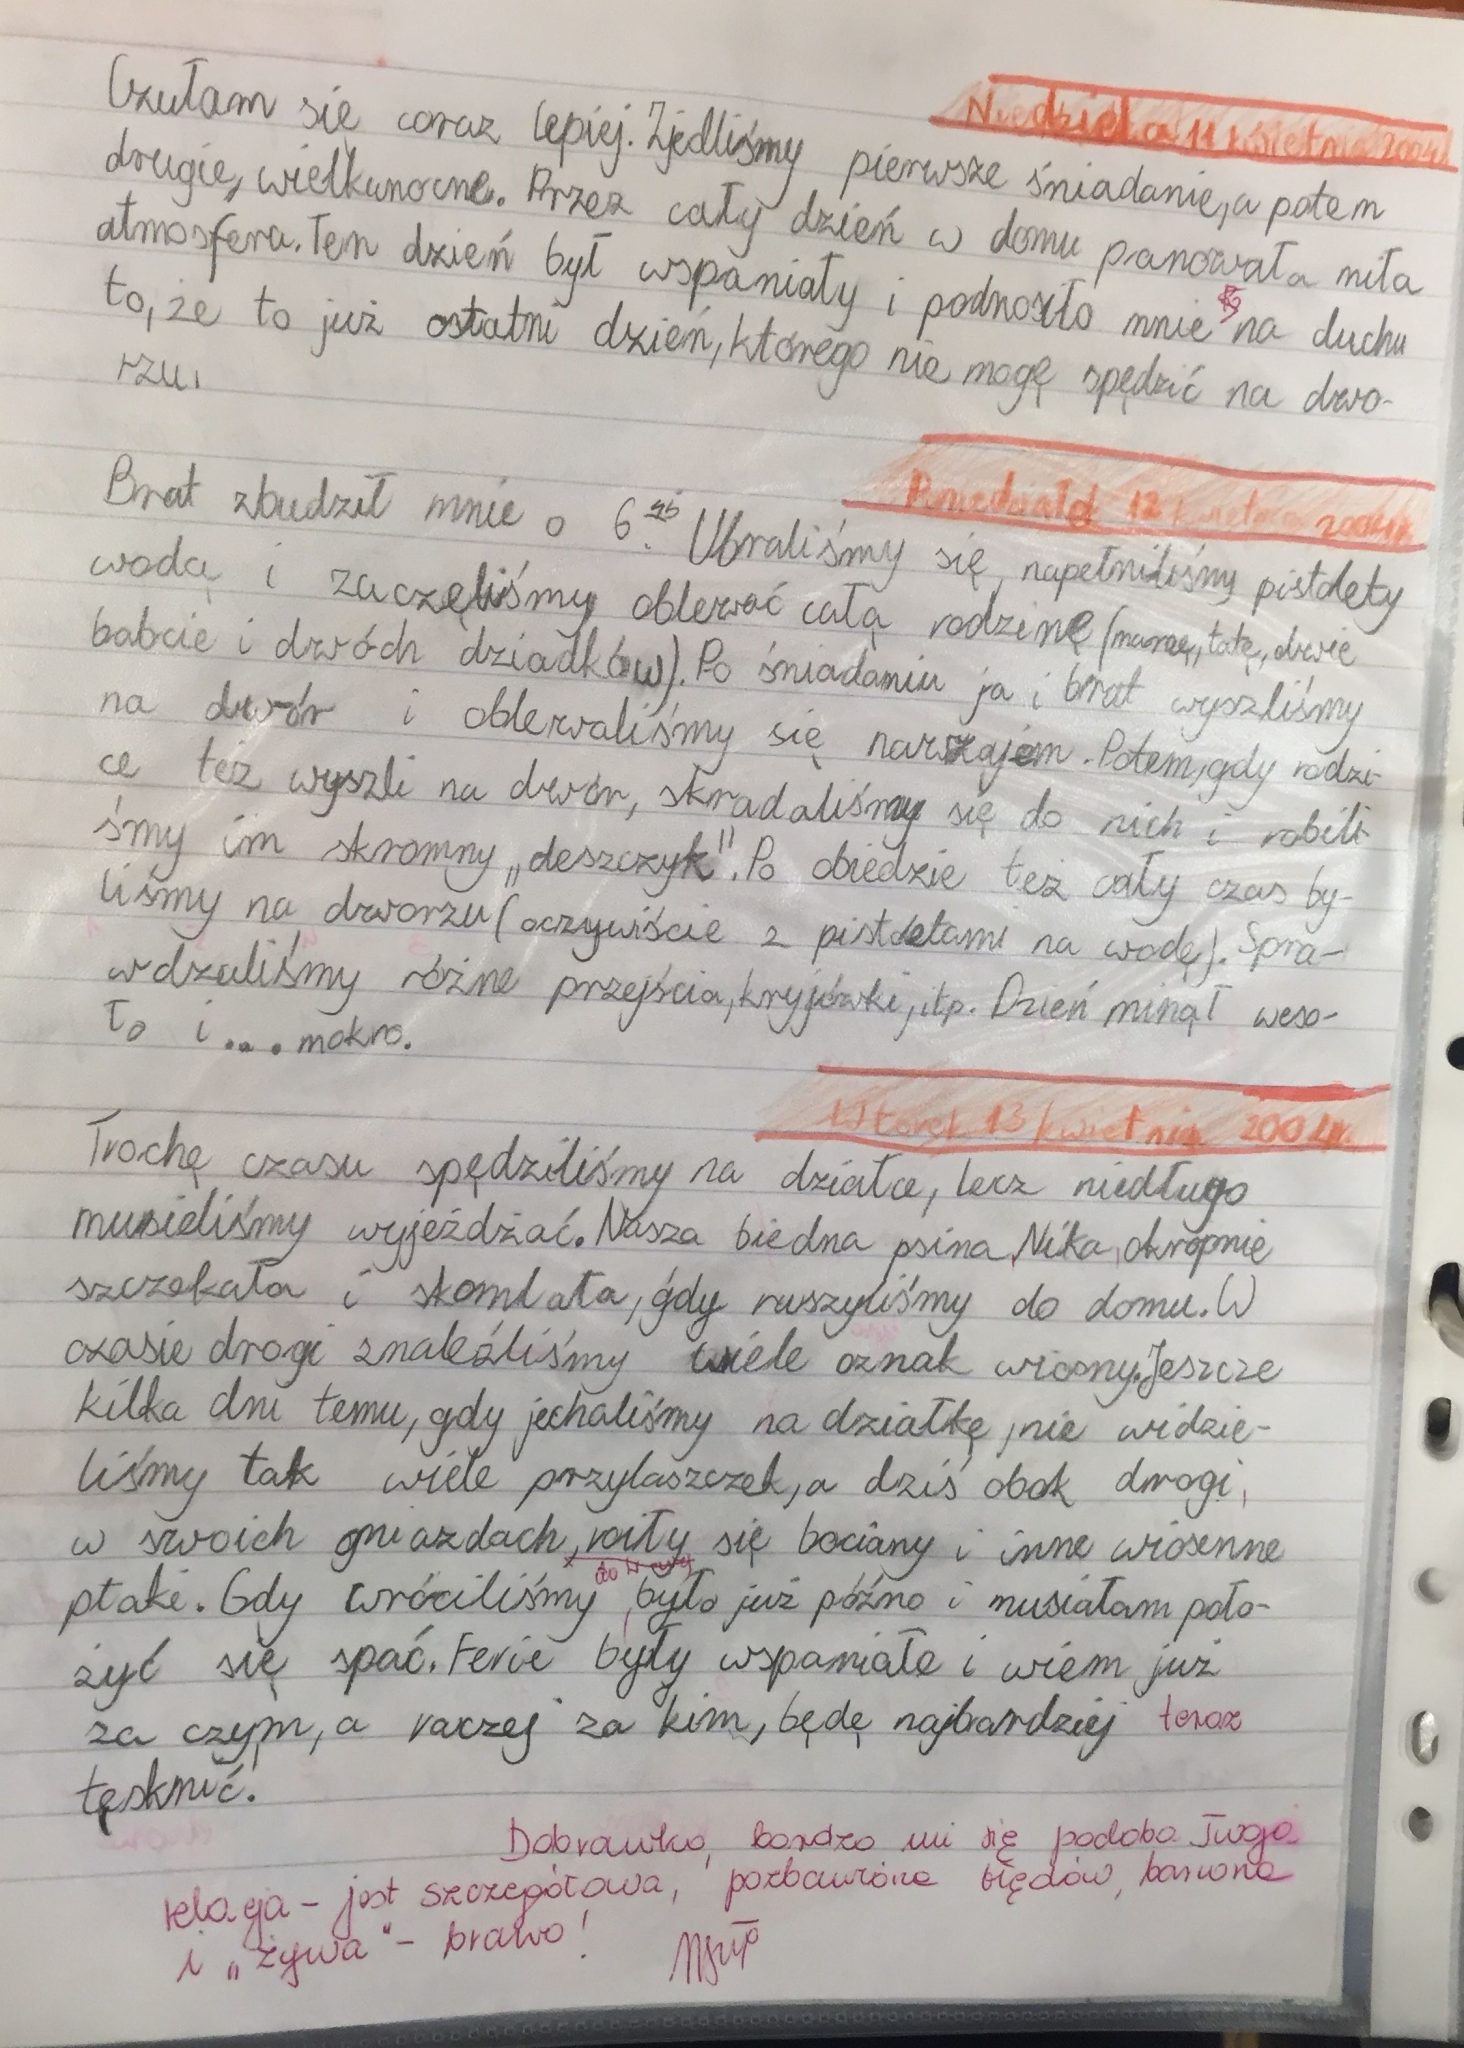 Niedziela 11 kwietnia 2004r.
Czułam się coraz lepiej. Zjedliśmy pierwsze śniadanie, a potem
drugie, wielkanocne. Przez cały dzień w domu panowała miła
atmosfera. Ten dzień był wspaniały i podnosiło mnie na duchu
to, że to już ostatni dzień, którego nie mogę spędzić na dwo-
rzu.
Poniedziałek 12 kwietnia 2004r.
Brat zbudził mnie o 6 45. Ubraliśmy się, napełniliśmy pistolety
wodą i zaczęliśmy oblewać całą rodzinę (mamę, tatę, dwie
babcie i dwóch dziadków). Po śniadaniu ja i brat wyszliśmy
na dwór i oblewaliśmy się nawzajem. Potem, gdy rodzi-
ce też wyszli na dwór, skradaliśmy się do nich i robili-
śmy im skromny „deszczyk". Po obiedzie też cały czas by-
liśmy na dworzu (oczywiście z pistoletami na wodę). Spra-
wdzaliśmy różne przejścia, kryjówki, itp. Dzień minął weso-
ło i .... mokro.
Wtorek 13 kwietnia 2004r.
Trochę czasu spędziliśmy na działce, lecz niedługo
musieliśmy wyjeżdżać. Nasza biedna psina, Nika, okropnie
szczekała i skomlała, gdy ruszyliśmy do domu. W
czasie drogi znaleźliśmy wiele oznak wiosny. Jeszcze
kilka dni temu, gdy jechaliśmy na działkę, nie widzie-
liśmy tak wiele przylaszczek, a dziś obok drogi,
w swoich gniazdach, roiły się bociany i inne wiosenne
ptaki. Gdy wróciliśmy, było już późno i musiałam poło-
żyć się spać. Ferie były wspaniałe i wiem już
za czym, a raczej za kim, będę najbardziej teraz
tęsknić.
Dobrawko, bardzo mi się podoba Twoja
relacja – jest szczegółowa, pozbawiona błędów, barwna
i „żywa" – brawo!